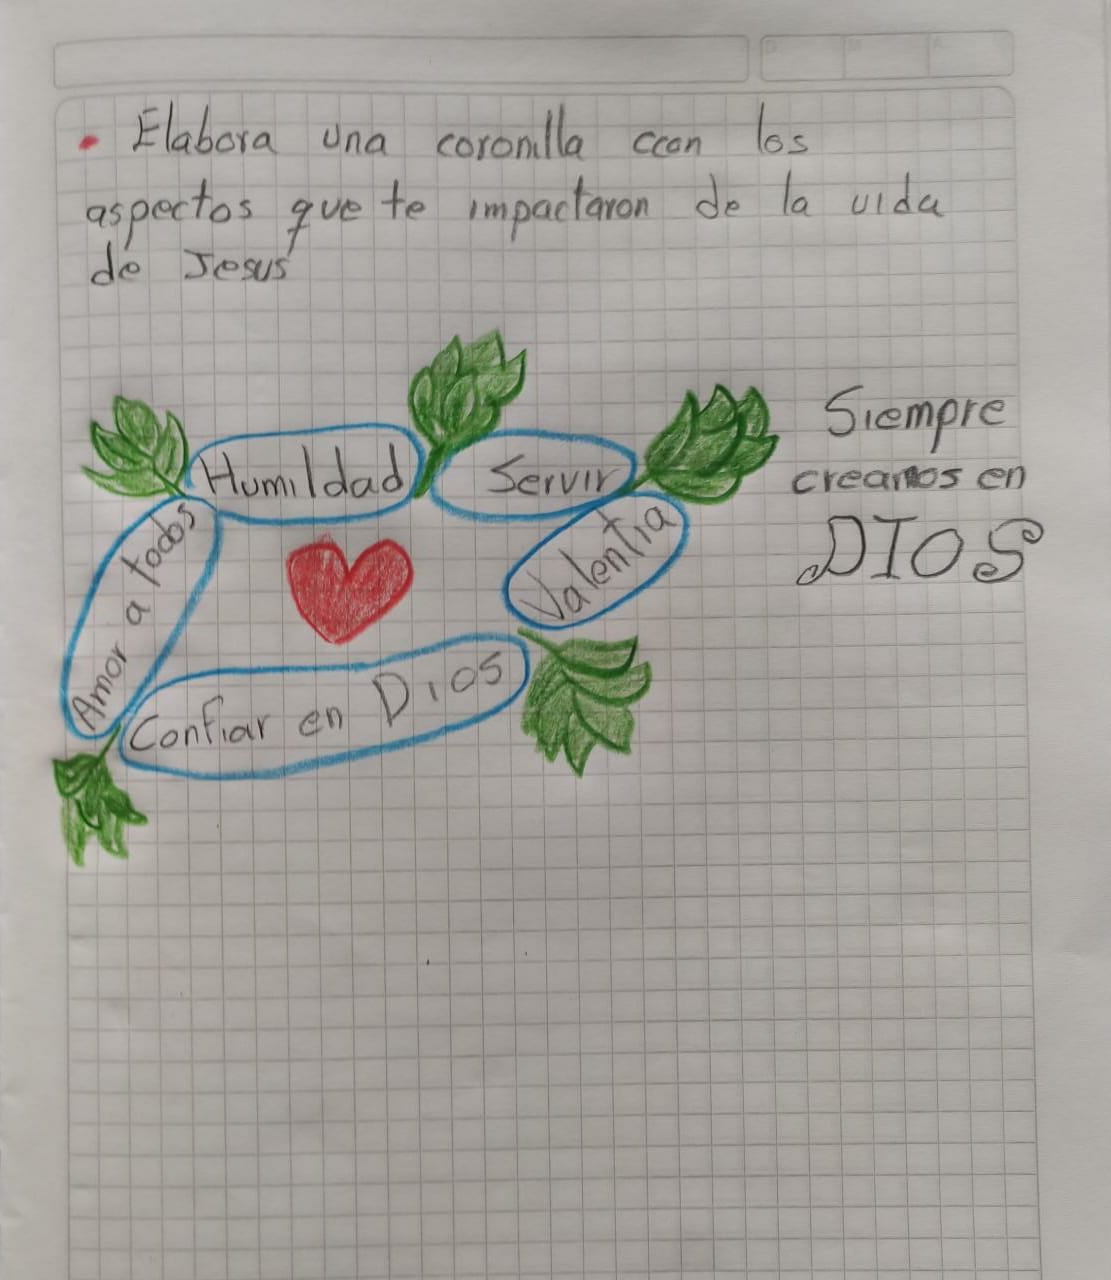 • Elabora una coronilla ccon los
aspectos que te impactaron de la vida
de Jesus
Humildad
Servir
Valentia
Amor a todos
Confiar en Dios
Siempre
creamos en
DIOS